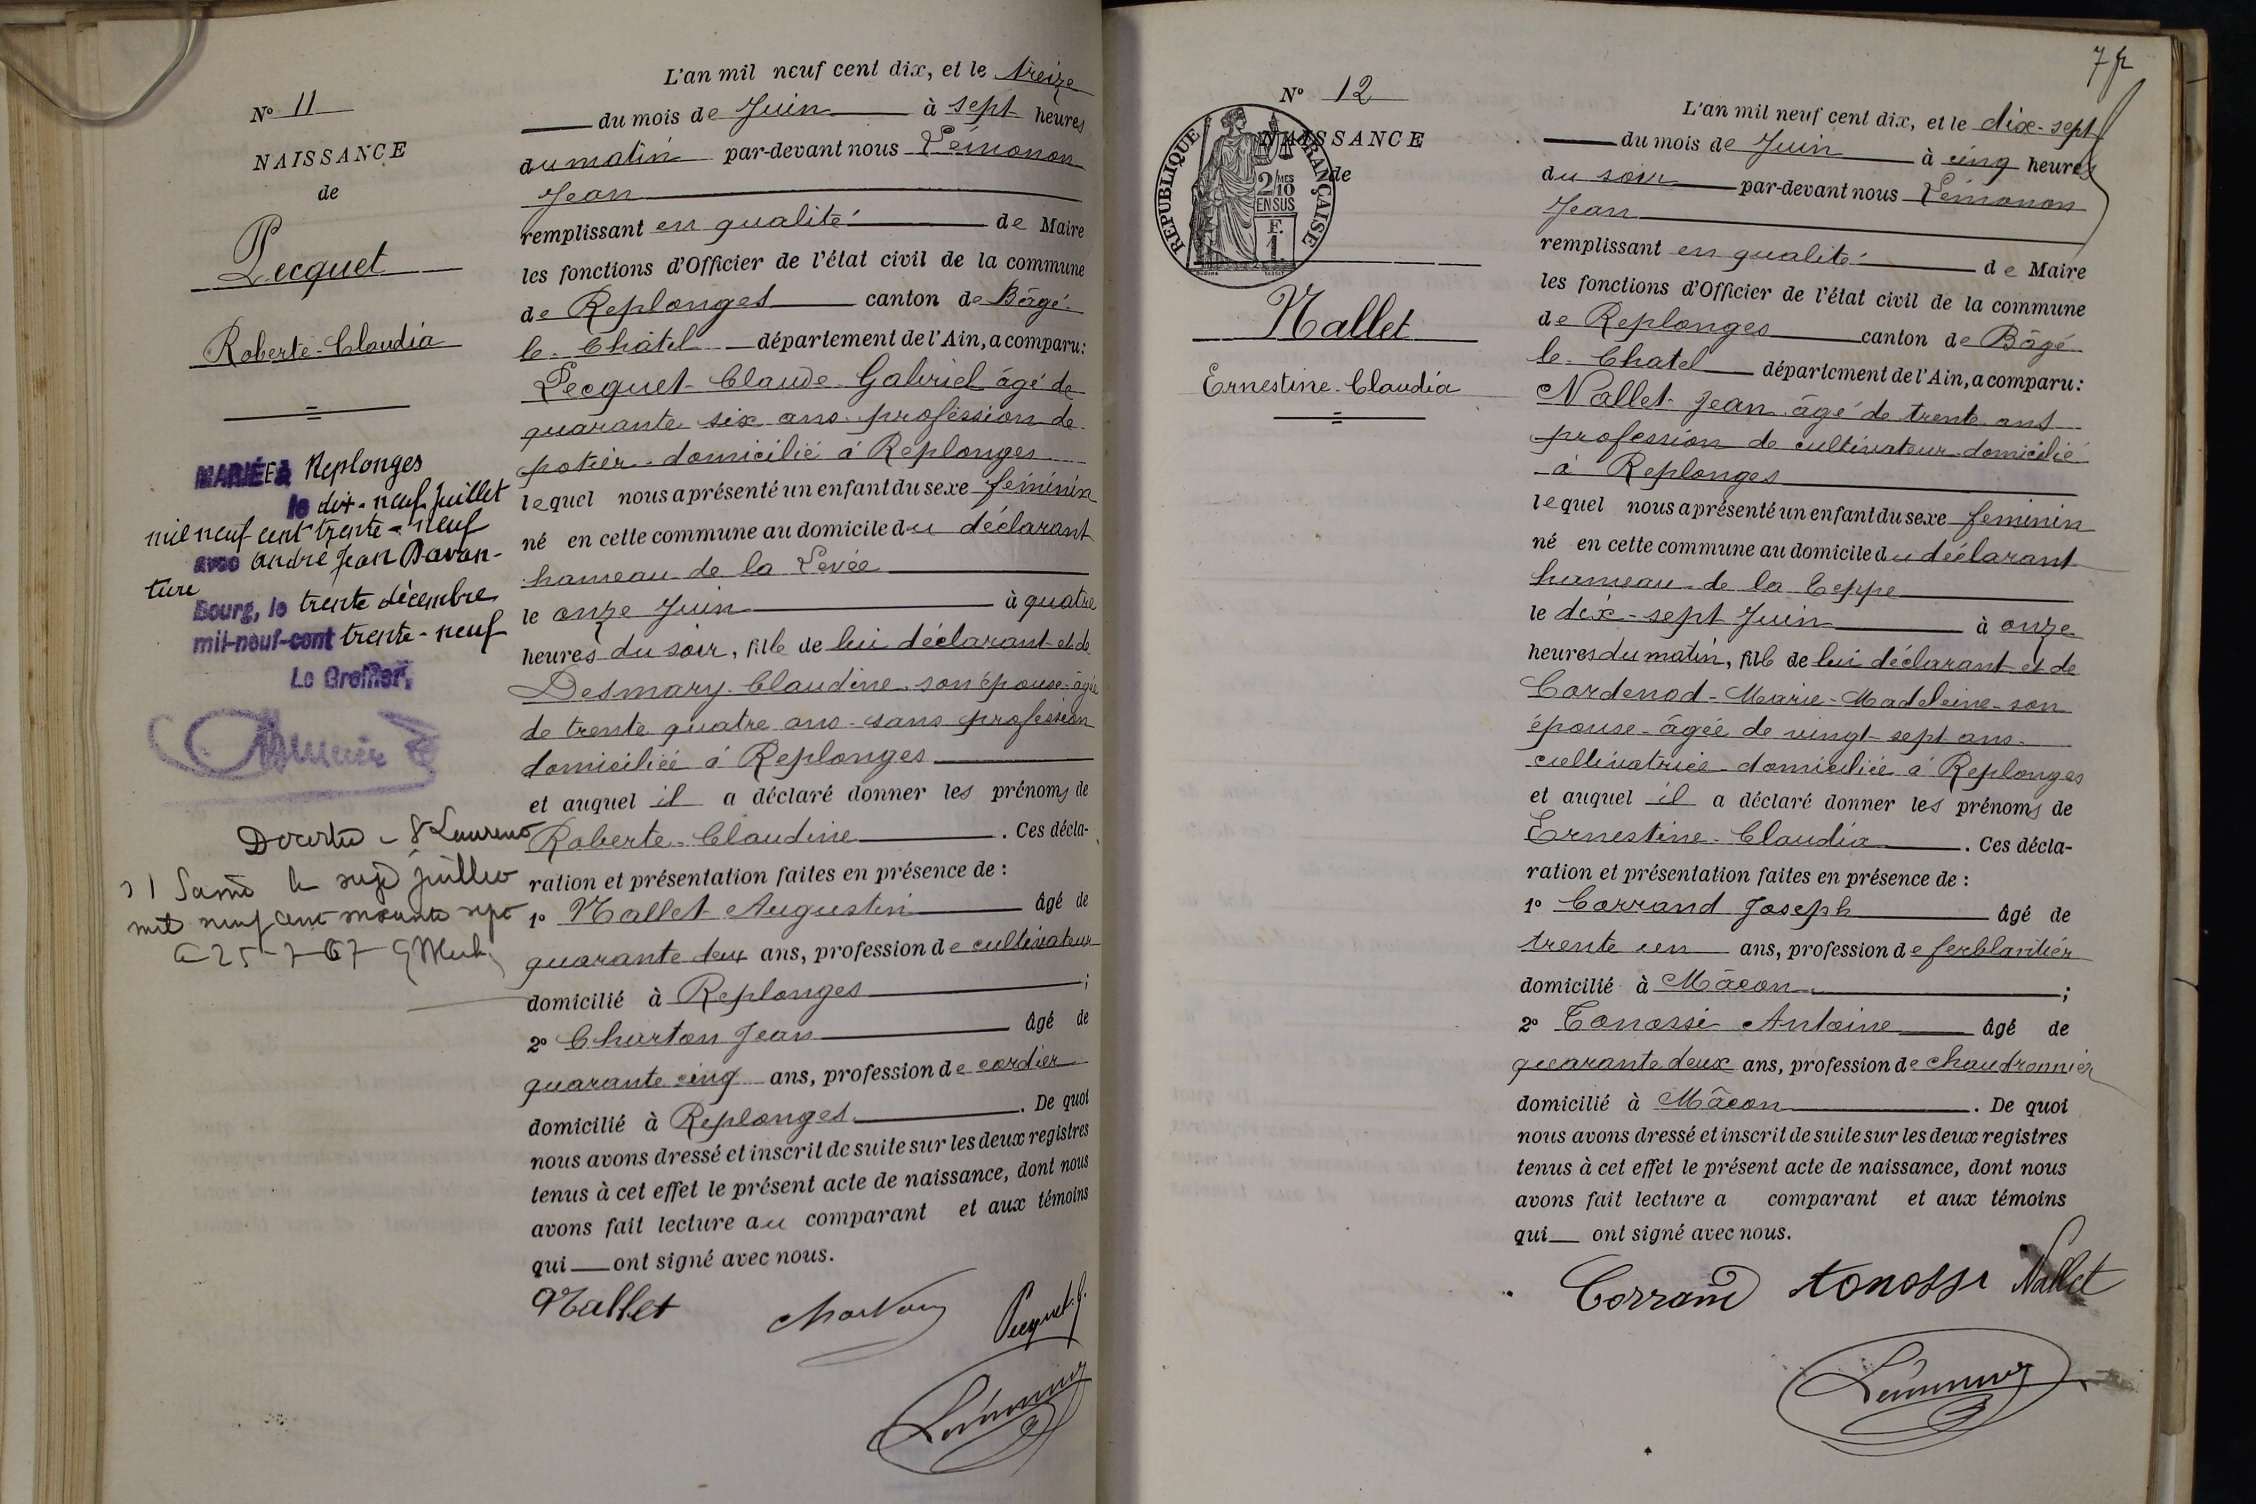 N° 11
NAISSANCE
de
Pecquet
Roberte-Claudia
MARIÉE à Replonges
le dix-neuf Juillet
mil neuf cent trente-neuf
avec André Jean Davan-
ture
Bourg, le trente décembre
mil-neuf-cent trente-neuf
Le Greffier,
Décédée à St Laurent
s/ Saône le onze juillet
mil neuf cent soixante sept
25-7-67
L'an mil neuf cent dix, et le treize
du mois de Juin à sept heures
du matin par-devant nous Lémonon
Jean
remplissant en qualité de Maire
les fonctions d'Officier de l'état civil de la commune
de Replonges canton de Bâgé
le-Châtel département de l'Ain, a comparu:
Pecquet-Claude-Gabriel âgé de
quarante six ans-profession de
potier-domicilié à Replonges
lequel nous a présenté un enfant du sexe féminin
né en cette commune au domicile du déclarant
hameau de la Levée
le onze Juin à quatre
heures du soir, fille de lui déclarant et de
Desmary-Claudine-son épouse-âgée
de trente quatre ans-sans profession
domiciliée à Replonges
et auquel il a déclaré donner les prénoms de
Roberte-Claudine. Ces décla-
ration et présentation faites en présence de :
1° Nallet-Augustin âgé de
quarante deux ans, profession de cultivateur
domicilié à Replonges;
2° Charton Jean âgé de
quarante cinq ans, profession de cordier
domicilié à Replonges. De quoi
nous avons dressé et inscrit de suite sur les deux registres
tenus à cet effet le présent acte de naissance, dont nous
avons fait lecture au comparant et aux témoins
qui ont signé avec nous.
Nallet Charton Pecquet.G.
Lémonon
7
N° 12
NAISSANCE
de
RÉPUBLIQUE FRANÇAISE
2/10 MES
EN SUS
F.
1
Nallet
Ernestine-Claudia
L'an mil neuf cent dix, et le dix-sept
du mois de Juin à cinq heures
du soir par-devant nous Lémonon
Jean
remplissant en qualité de Maire
les fonctions d'Officier de l'état civil de la commune
de Replonges canton de Bâgé
le-Chatel département de l'Ain, a comparu:
Nallet-Jean-âgé de trente ans
profession de cultivateur-domicilié
à Replonges
lequel nous a présenté un enfant du sexe feminin
né en cette commune au domicile du déclarant
hameau de la Teppe
le dix-sept Juin à onze
heures du matin, fille de lui déclarant et de
Cordenod-Marie-Madeleine-son
épouse-âgée de vingt-sept ans-
cultivatrice-domiciliée à Replonges
et auquel il a déclaré donner les prénoms de
Ernestine-Claudia. Ces décla-
ration et présentation faites en présence de :
1° Corrand Joseph âgé de
trente un ans, profession de ferblantier
domicilié à Mâcon;
2° Tonossi Antoine âgé de
quarante deux ans, profession de chaudronnier
domicilié à Mâcon. De quoi
nous avons dressé et inscrit de suite sur les deux registres
tenus à cet effet le présent acte de naissance, dont nous
avons fait lecture a comparant et aux témoins
qui ont signé avec nous.
Corrand tonossi Nallet
Lémonon